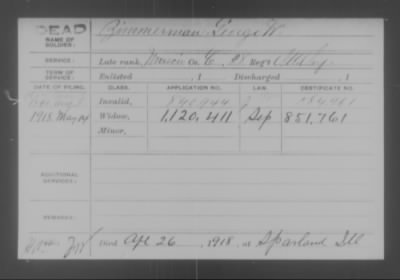 DEAD Zimmerman George W.
NAME OF
SOLDIER:
SERVICE: Late rank, Co. Reg't
TERM OF
SERVICE: Enlisted , 1 Discharged , 1
DATE OF FILING. CLASS. APPLICATION NO. LAW. CERTIFICATE NO.
Invalid,
1918 May 14 Widow, 1,120,411 Sep 851,761
Minor,
ADDITIONAL
SERVICES:
REMARKS:
Died Apr 26, 1918, at Sparland Ill